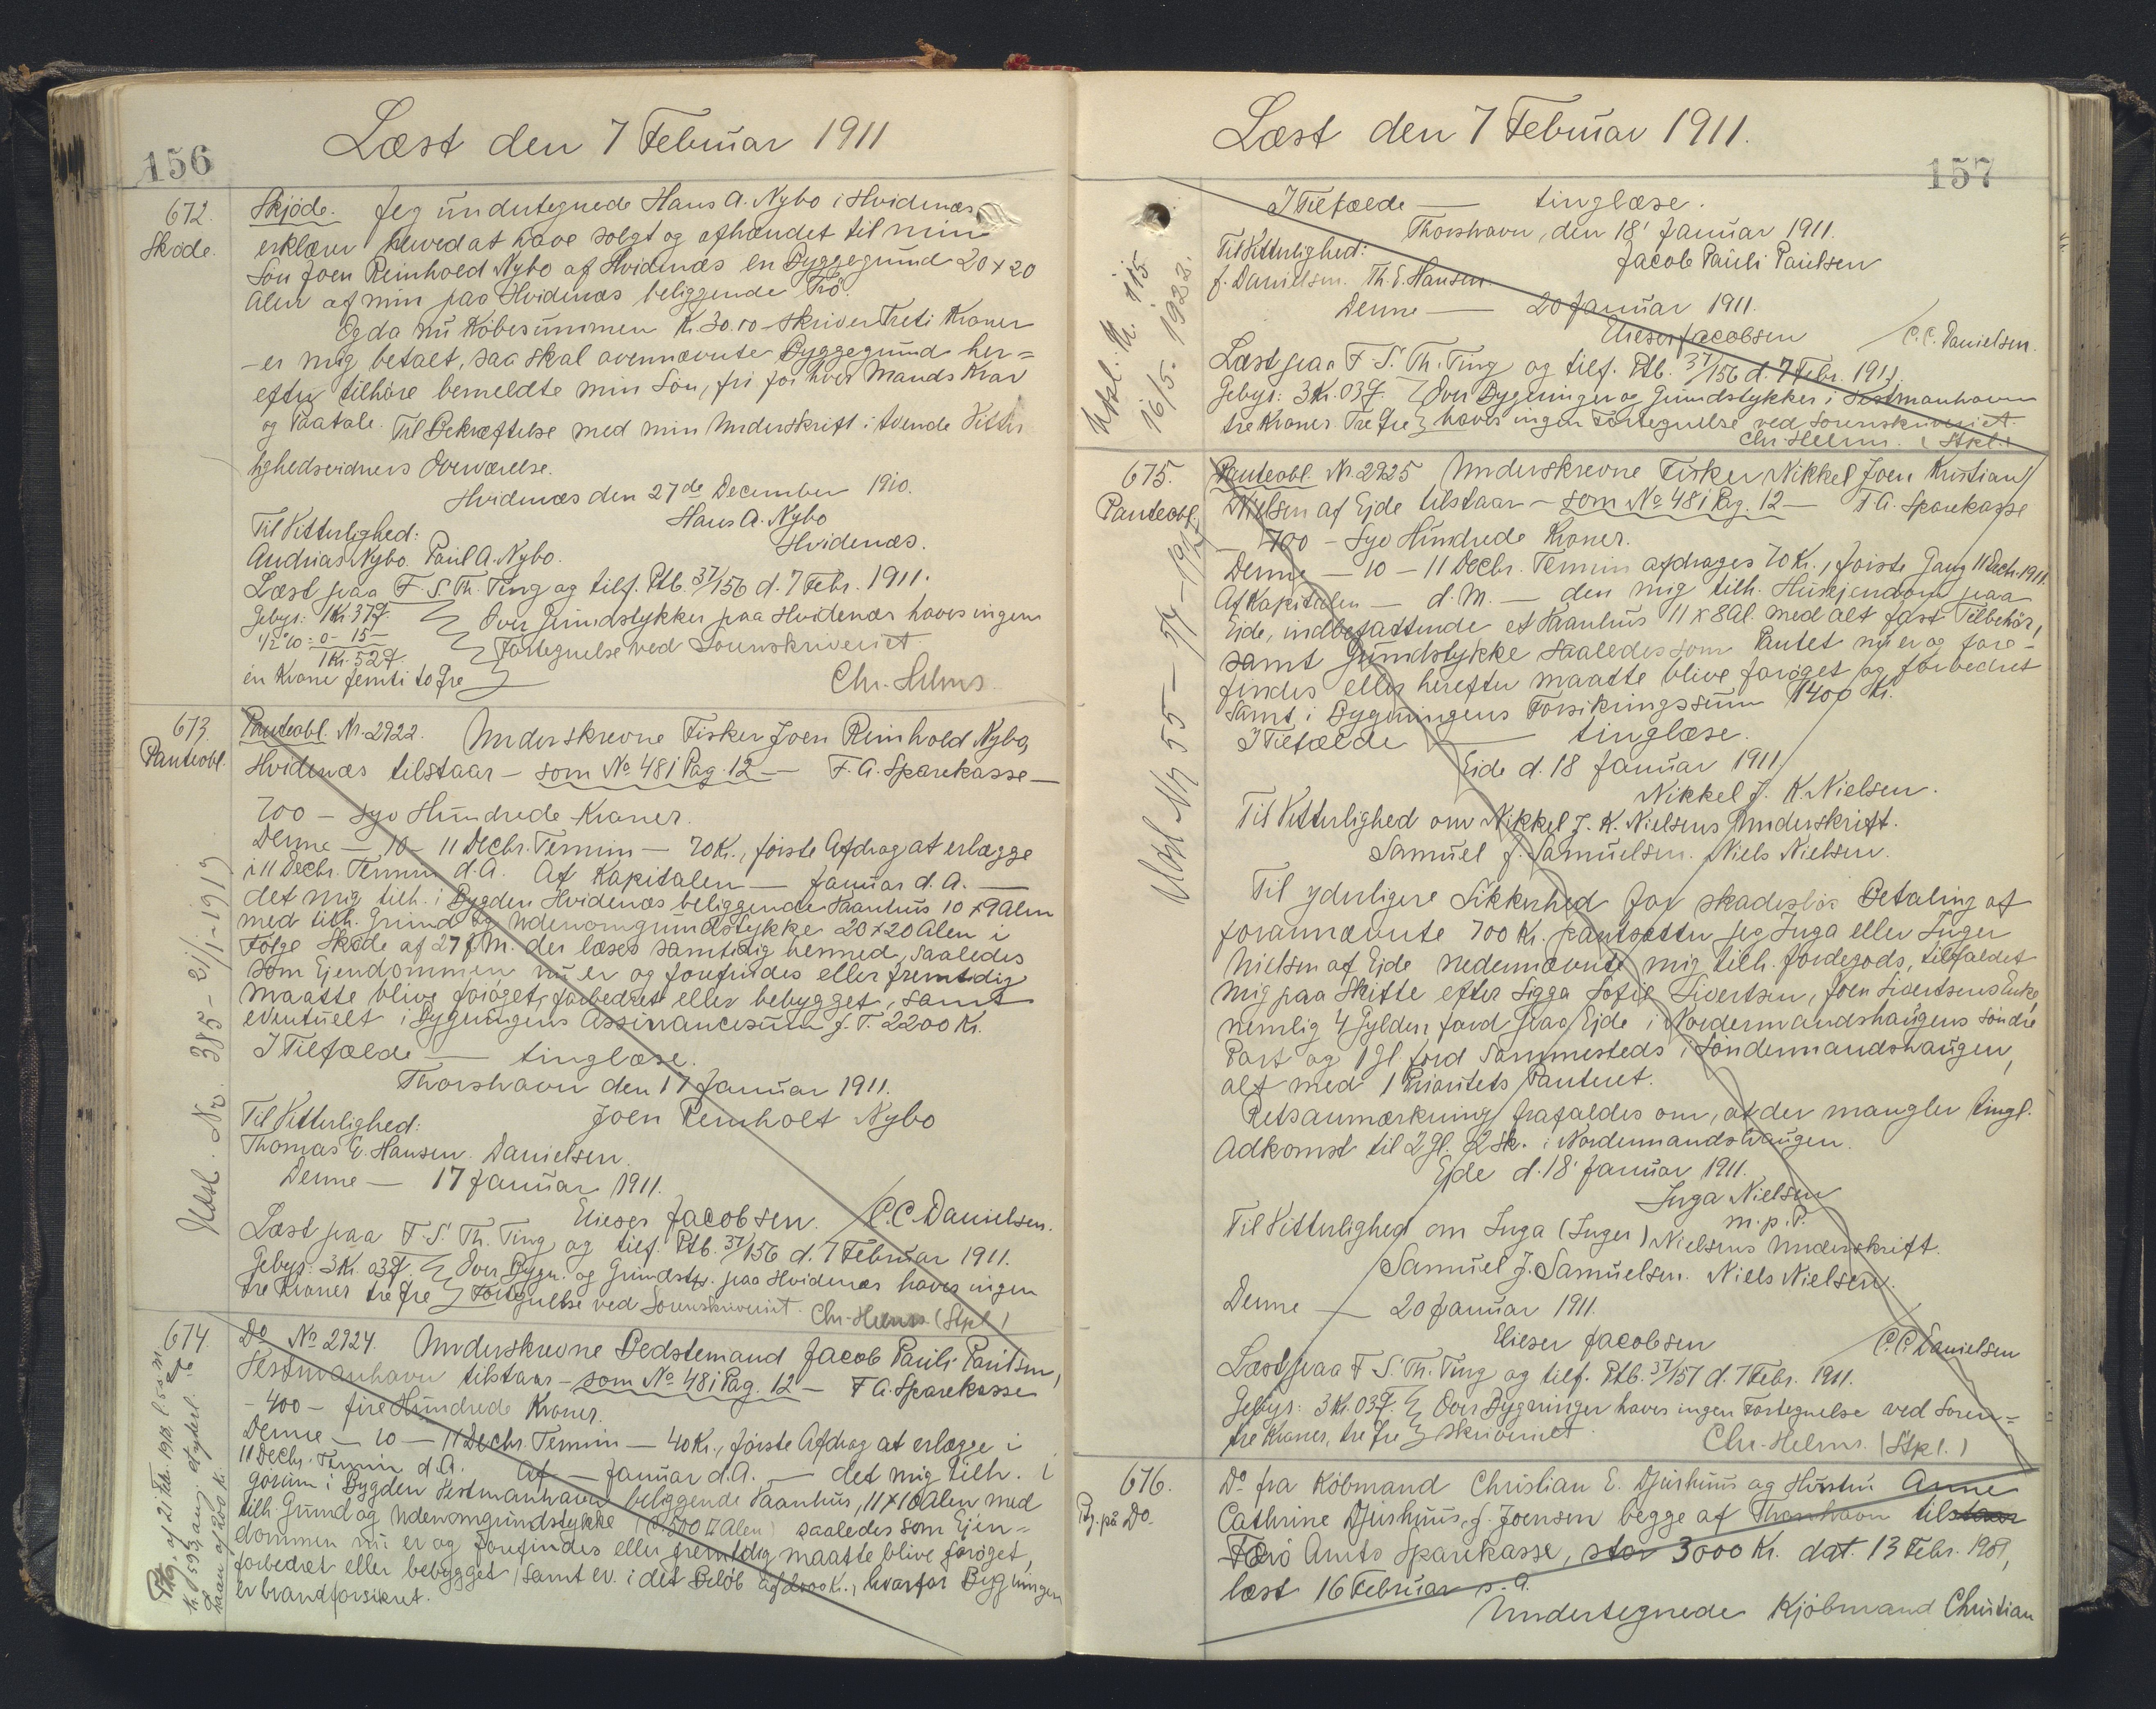 Læst den 7 Februar 1911
156
672.
Skøde.
Skjøde. Jeg undertegnede Hans A. Nybo i Hvidenæs
erklærer herved at have solgt og afhændet til min
Søn Joen Reinhold Nybo af Hvidenæs en Byggegrund 20 x 20
Alen af min paa Hvidenæs beliggende Trø.
Og da nu Købesummen Kr. 30.00 - skriver Treti Kroner
- er mig betalt, saa skal ovennævnte Byggegrund her=
efter tilhøre bemeldte min Søn, fri for hver Mands Krav
og Paatale. Til Bekræftelse med min Underskrift i tvende Vitter
lighedsvidners Overværelse.
Hvidenæs den 27de December 1910.
Hans A. Nybo
Hvidenæs.
Til Vitterlighed:
Andrias Nybo. Paul A. Nybo.
Læst paa F. S. Th. Ting og tilf. Ptb. 37/156 d. 7 Febr. 1911.
Gebyr: 1Kr. 37Ø. Over Grundstykker paa Hvidenæs haves ingen
½ % = 0 - 15 - Fortegnelse ved Sorenskriveriet.
1Kr. 52Ø.
en Krone femti to Øre
Chr. Helms.
673.
Panteobl.
Panteobl. Nr. 2922. Underskrevne Fisker Joen Reinhold Nybo,
Hvidenæs tilstaar - som No 48 i Pag. 12 - F. A. Sparekasse -
700 - syv Hundrede Kroner.
Denne - 10 - 11 Decbr. Termin - 70 Kr., første Afdrag at erlægge
i 11 Decbr. Termin d.A. Af Kapitalen - Januar d. A. -
det mig tilh. i Bygden Hvidenæs beliggende Vaanhus 10 x 9 Alen
med tilh. Grund og Udenomgrundstykke 20 x 20 Alen i
Følge Skøde af 27 f.M. der læses samtidig hermed, saaledes
som Ejendommen nu er og forefindes eller fremtidig
maatte blive forøget, forbedret eller bebygget, samt
eventuelt i Bygningens Assurancesum f. T. 2200 Kr.
I Tilfælde - tinglæse.
Thorshavn den 17 Januar 1911.
Til Vitterlighed: Joen Reinholt Nybo
Thomas E. Hansen. Danielsen.
Denne - 17 Januar 1911.
Elieser Jacobsen. / C.C. Danielsen.
Læst paa F. S. Th. Ting og tilf. Ptb. 37/156 d. 7 Februar 1911.
Gebyr: 3 Kr. 03Ø. Over Bygn. og Grundst. paa Hvidenæs haves ingen
tre Kroner tre Øre Fortegnelse ved Sorenskriveriet. Chr. Helms. (Stpl.)
Udsl. No. 385 - 21/1 - 1919
674.
Do No 2924. Underskrevne Bedstemand Jacob Pauli Paulsen,
Vestmanhavn tilstaar - som No 48 i Pag. 12 - F A. Sparekasse
- 400 - fire Hundrede Kroner.
Denne - 10 - 11 Decbr. Termin - 40 Kr., første Afdrag at erlægge i
11 Decbr. Termin d.A. Af - Januar d.A. - det mig tilh. i
i Bygden Vestmanhavn beliggende Vaanhus, 11 x 10 Alen med
tilh. Grund og Udenomgrundstykke (500 □ Alen) saaledes som Ejen=
dommen nu er og forefindes eller fremtidig maatte blive forøget,
forbedret eller bebygget, samt ev. i det Beløb af Kr., hvorfor Bygningen
er brandforsikret.
Læst den 7 Februar 1911.
157
I Tilfælde - tinglæse.
Thorshavn, den 18' Januar 1911.
Til Vitterlighed: Jacob Pauli Paulsen
J. Danielsen. Th. E. Hansen.
Denne - 20 Januar 1911.
Elieser Jacobsen / C. C. Danielsen.
Læst paa F. S. Th. Ting og tilf. Ptb. 37/156 d. 7 Febr. 1911.
Gebyr: 3 Kr. 03Ø. Over Bygninger og Grundstykker i Vestmanhavn
tre Kroner Tre Øre haves ingen Fortegnelse ved Sorenskriveriet.
Chr. Helms. (Stpl.)
Udsl. Nr. 115
16/5. 1923.
675.
Panteobl.
Panteobl. Nr. 2925 Underskrevne Fisker Nikkel Joen Kristian
Nielsen af Ejde tilstaar - som No 48 i Pag. 12 - F. A. Sparekasse
700 - Syv Hundrede Kroner.
Denne - 10 - 11 Decbr. Termin afdrages 70 Kr., første Gang 11 Decbr. 1911.
Af Kapitalen - d. M. - den mig tilh. Husejendom paa
Eide, indbefattende et Vaanhus 11 x 8 Al. med alt fast Tilbehør,
samt Grundstykke saaledes som Pantet nu er og fore-
findes eller herefter maatte blive forøget og forbedret
samt i Bygningens Forsikringssum 1400 Kr.
I Tilfælde - tinglæse.
Eide d. 18 Januar 1911.
Nikkel J. K. Nielsen.
Til Vitterlighed om Nikkel J. K. Nielsens Underskrift.
Samuel J. Samuelsen. Niels Nielsen.
Til yderligere Sikkerhed for skadesløs Betaling af
forannævnte 700 Kr. pantsætter jeg Inga eller Inger
Nielsen af Ejde nedennævnte mig tilh. Jordegods, tilfaldet
mig paa Skifte efter Sigga Sofie Sivertsen, Joen Sivertsens Enke,
nemlig 4 Gylden Jord paa Ejde i Nordermandshaugens søndre
Part og 1 Gl. Jord sammesteds i Søndermandshaugen,
alt med 1 Prioritets Panteret.
Retsanmærkning frafaldes om, at der mangler tingl.
Adkomst til 2 Gl. 2 Sk. i Nordermandshaugen.
Ejde d. 18' Januar 1911.
Inga Nielsen
m. p. P.
Til Vitterlighed om Inga (Inger) Nielsens Underskrift.
Samuel J. Samuelsen. Niels Nielsen.
Denne - 20 Januar 1911.
Elieser Jacobsen / C. C. Danielsen
Læst paa F. S. Th. Ting og tilf. Ptb. 37/157 d. 7 Febr. 1911.
Gebyr: 3 Kr. 03Ø. Over Bygninger haves ingen Fortegnelse ved Soren=
tre Kroner, tre Øre skriveriet.
Chr. Helms. (Stpl.)
676.
Ptg. på Do.
Do fra Købmand Christian E. Djurhuus og Hustru Anne
Cathrine Djurhuus, f. Joensen begge af Thorshavn tilstaar
Færø Amts Sparekasse, stor 3000 Kr. dat. 13 Febr. 1909,
læst 16 Februar s. A.
Undertegnede Kjøbmand Christian